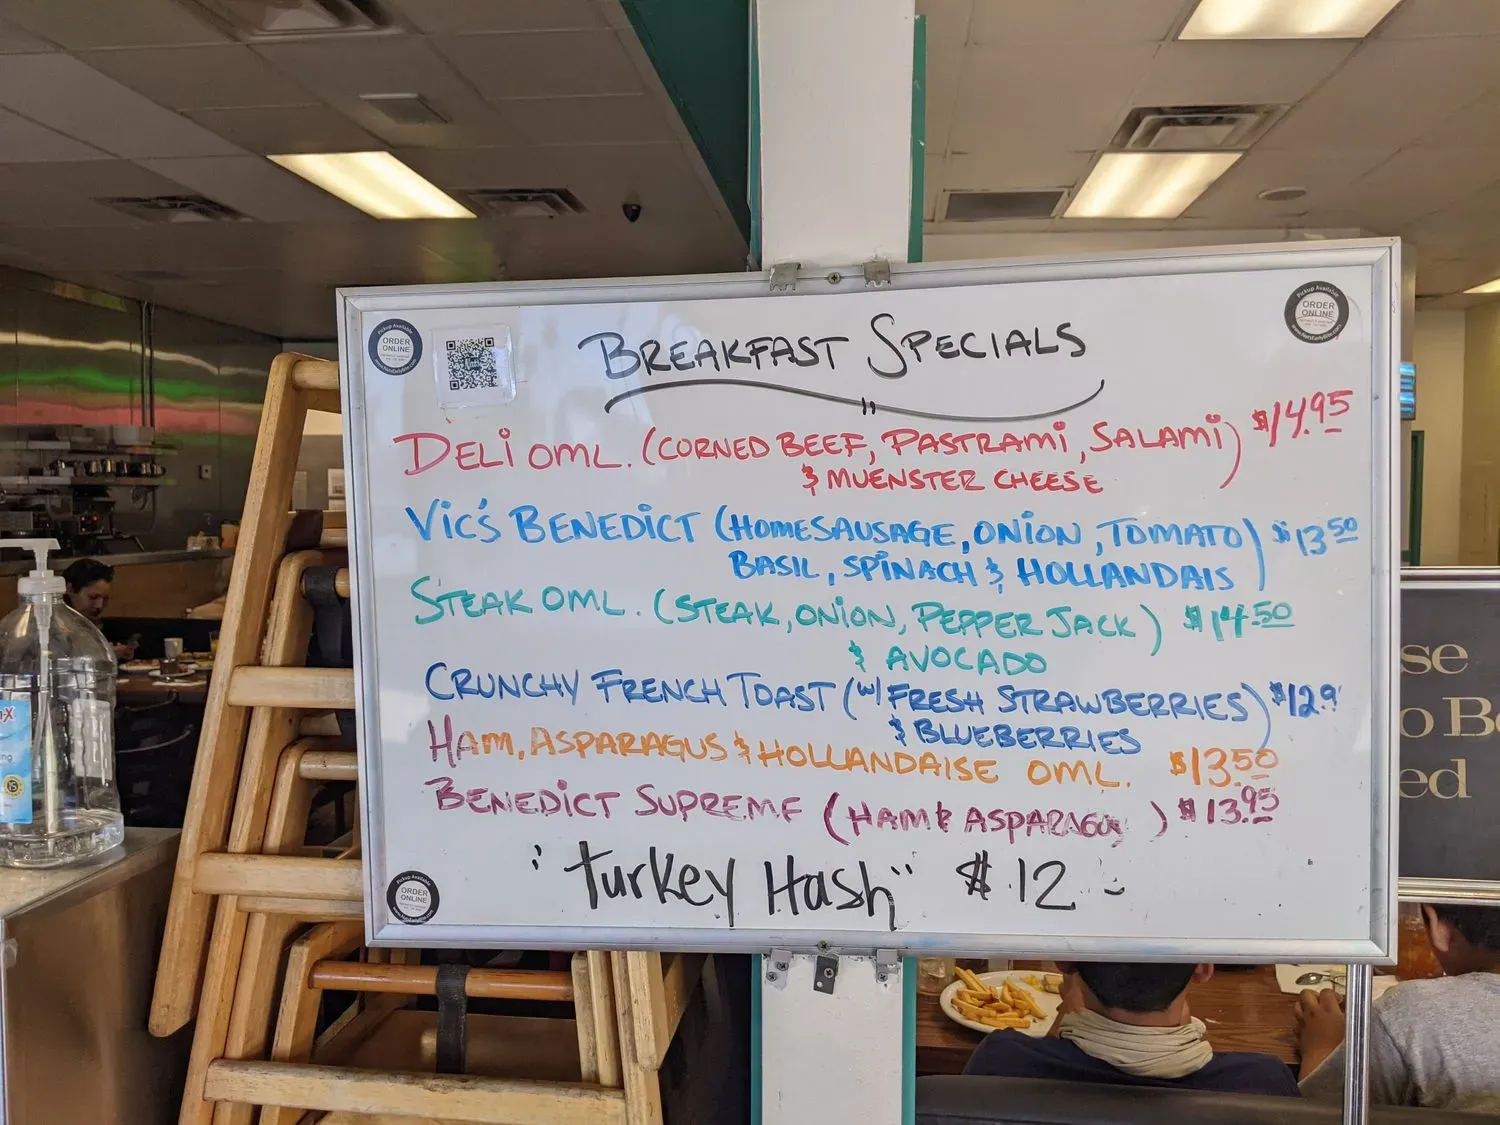 BREAKFAST SPECIALS
DELI OML. (CORNED BEEF, PASTRAMI, SALAMI) $14.95
& MUENSTER CHEESE
VIC'S BENEDICT (HOMESAUSAGE, ONION, TOMATO) $13.50
BASIL, SPINACH & HOLLANDAIS
STEAK OML. (STEAK, ONION, PEPPER JACK) $14.50
& AVOCADO
CRUNCHY FRENCH TOAST (w/ FRESH STRAWBERRIES) $12.9
& BLUEBERRIES
HAM, ASPARAGUS & HOLLANDAISE OML. $13.50
BENEDICT SUPREME (HAM & ASPARAGUS) $13.95
"Turkey Hash" $12
Pickup Available
ORDER
ONLINE
Pickup Available
ORDER
ONLINE
Pickup Available
ORDER
ONLINE
se
o Be
ed